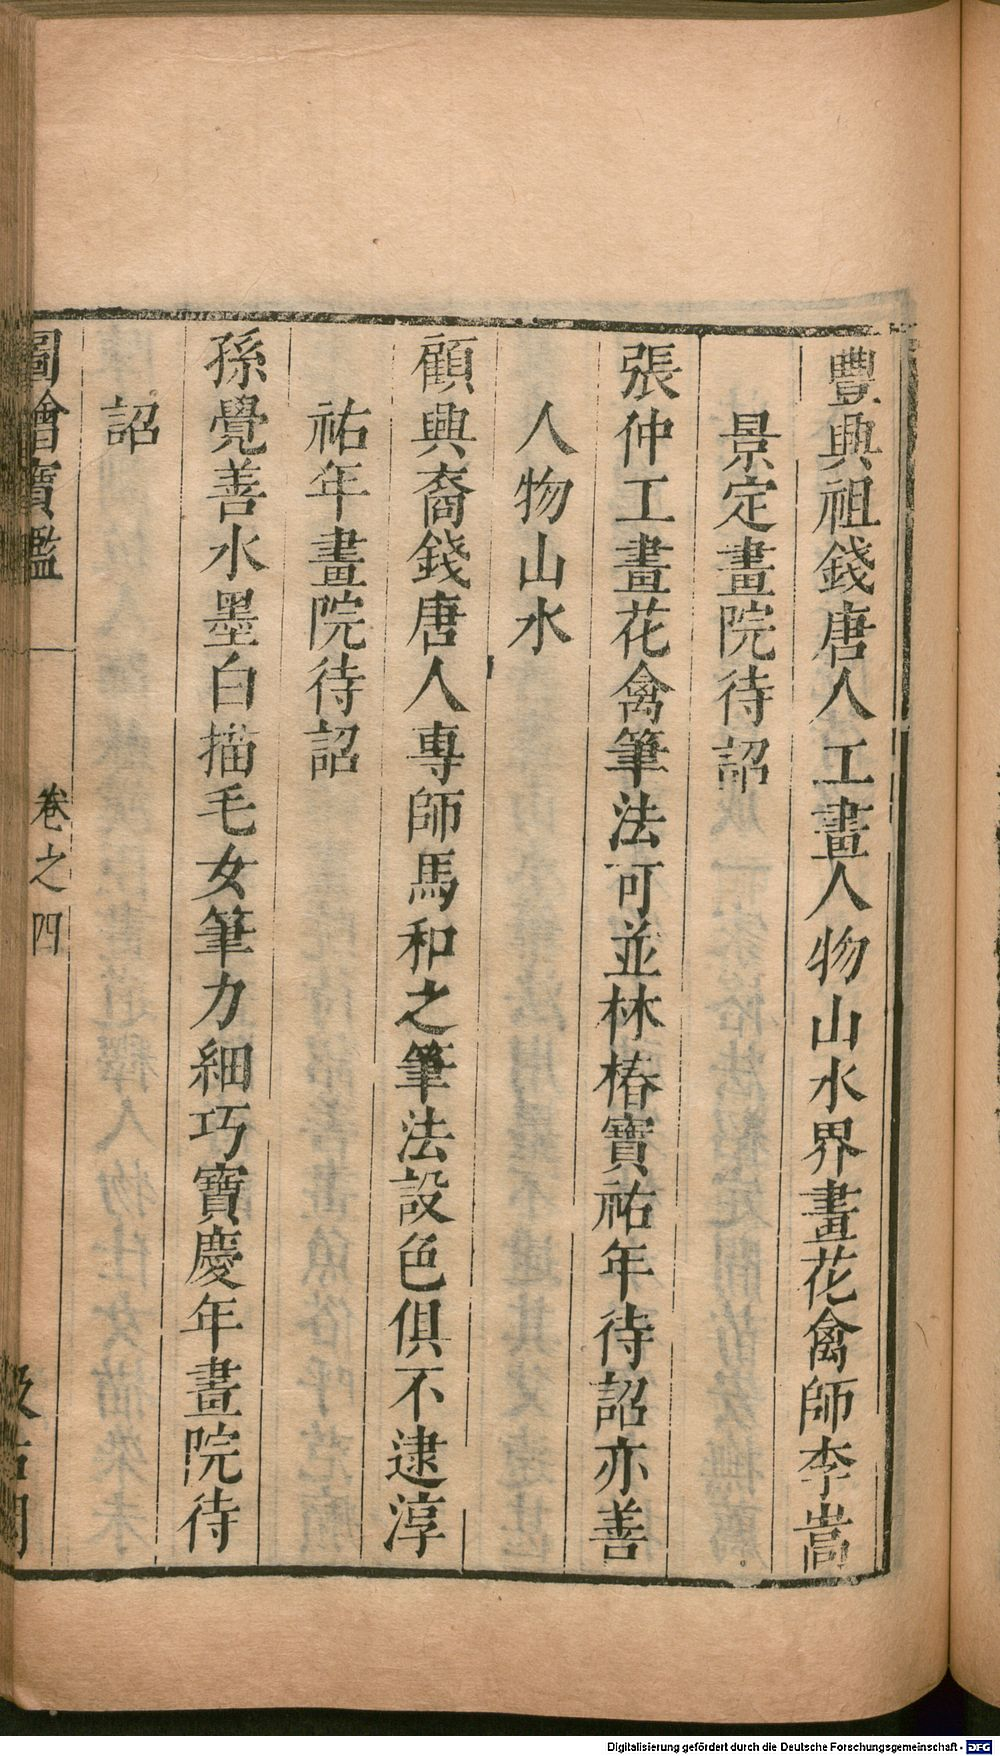 豐興祖錢唐人工畫人物山水界畫花禽師李嵩
景定畫院待詔
張仲工畫花禽筆法可並林椿寶祐年待詔亦善
人物山水
顧興裔錢唐人專師馬和之筆法設色俱不逮淳
祐年畫院待詔
孫覺善水墨白描毛女筆力細巧寶慶年畫院待
詔
圖繪寶鑑
卷之四
Digitalisierung gefördert durch die Deutsche Forschungsgemeinschaft - DFG